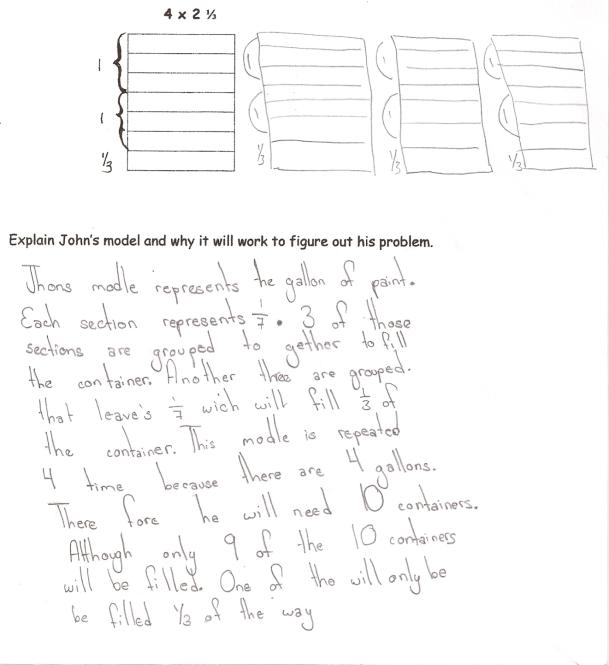 4 x 2 ⅓
1
1
⅓
1
1
⅓
1
1
⅓
1
1
⅓
Explain John's model and why it will work to figure out his problem.
Jhons modle represents the gallon of paint.
Each section represents 1/7. 3 of those
sections are grouped to gether to fill
the container. Another three are grouped.
that leave's 1/7 wich will fill 1/3 of
the container. This modle is repeated
4 time because there are 4 gallons.
There fore he will need 10 containers.
Although only 9 of the 10 containers
will be filled. One of the will only be
be filled ⅓ of the way